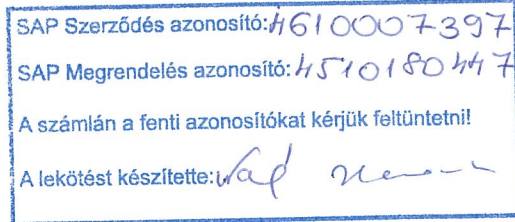 SAP Szerződés azonosító: 4610007397
SAP Megrendelés azonosító: 4510180447
A számlán a fenti azonosítókat kérjük feltüntetni!
A lekötést készítette: